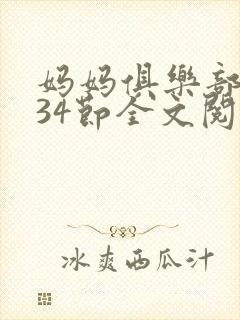 妈妈俱樂部
34節全文閱
冰爽西瓜汁